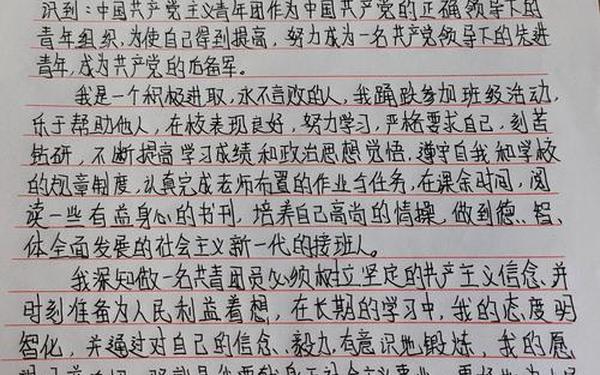 识到：中国共产党主义青年团作为中国共产党的正确领导下的
青年组织，为使自己得到提高，努力成为一名共产党领导下的先进
青年，成为共产党的后备军。
我是一个积极进取，永不言败的人，我踊跃参加班级活动，
乐于帮助他人，在校表现良好，努力学习，严格要求自己，刻苦
钻研，不断提高学习成绩和政治思想觉悟，遵守自我和学校
的规章制度，认真完成老师布置的作业与任务，在课余时间，阅
读一些有益身心的书刊，培养自己高尚的情操，做到德、智、
体全面发展的社会主义新一代的接班人。
我深知做一名共青团员必须树立坚定的共产主义信念、并
时刻准备为人民利益着想，在长期的学习中，我的态度明
智化，并通过对自己的信念、毅力，有意识地锻炼，我的愿